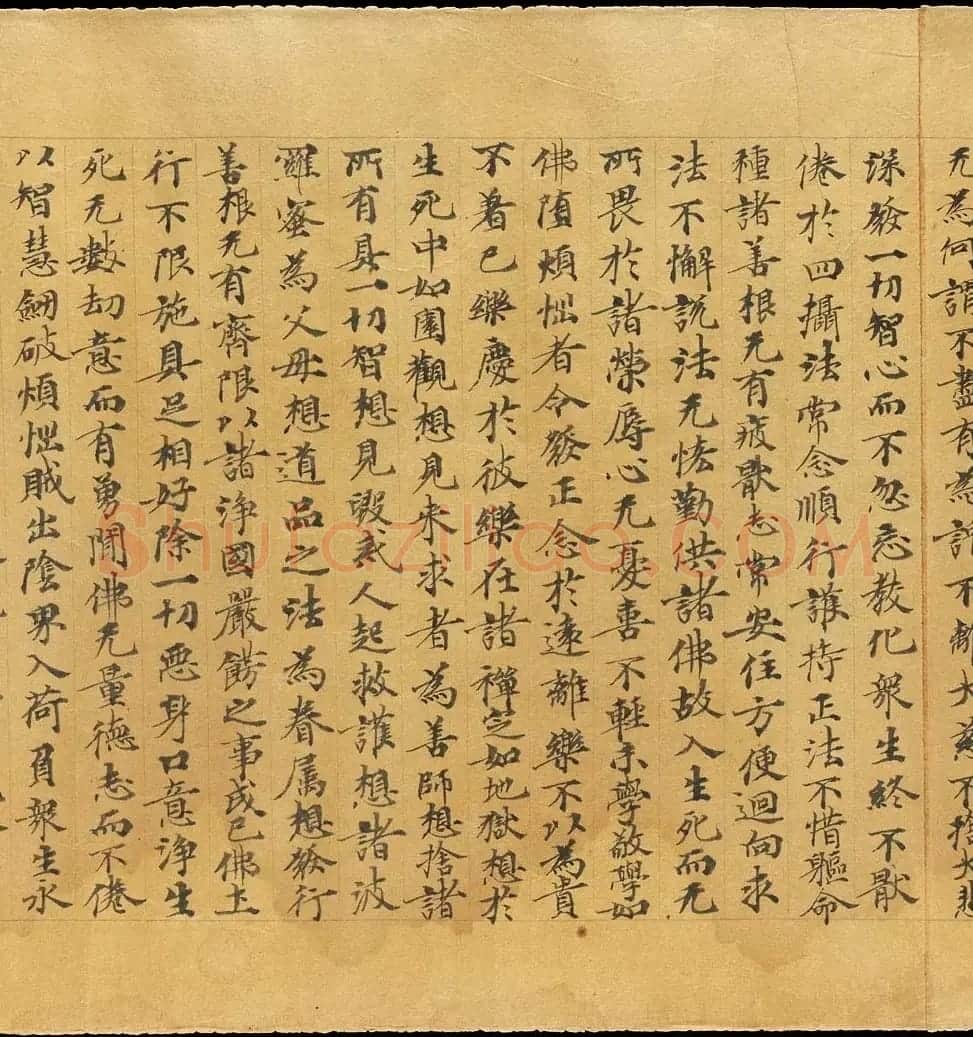 无為何謂不盡有為謂不離大慈不捨大悲
深發一切智心而不忽忘教化眾生終不猒
倦於四攝法常念順行護持正法不惜軀命
種諸善根无有疲猒志常安住方便迴向求
法不懈說法无悋勤供諸佛故入生死而无
所畏於諸榮辱心无憂喜不輕未學敬學如
佛墮煩惱者令發正念於遠離樂不以為貴
不著已樂慶於彼樂在諸禪定如地獄想於
生死中如園觀想見来求者為善師想捨諸
所有具一切智想見毀戒人起救護想諸波
羅蜜為父母想道品之法為眷属想發行
善根无有齊限以諸淨國嚴餝之事成已佛土
行不限施具足相好除一切惡身口意淨生
死无數劫意而有勇聞佛无量德志而不倦
以智慧劒破煩惱賊出陰界入荷負眾生永
Shufaziliao.com